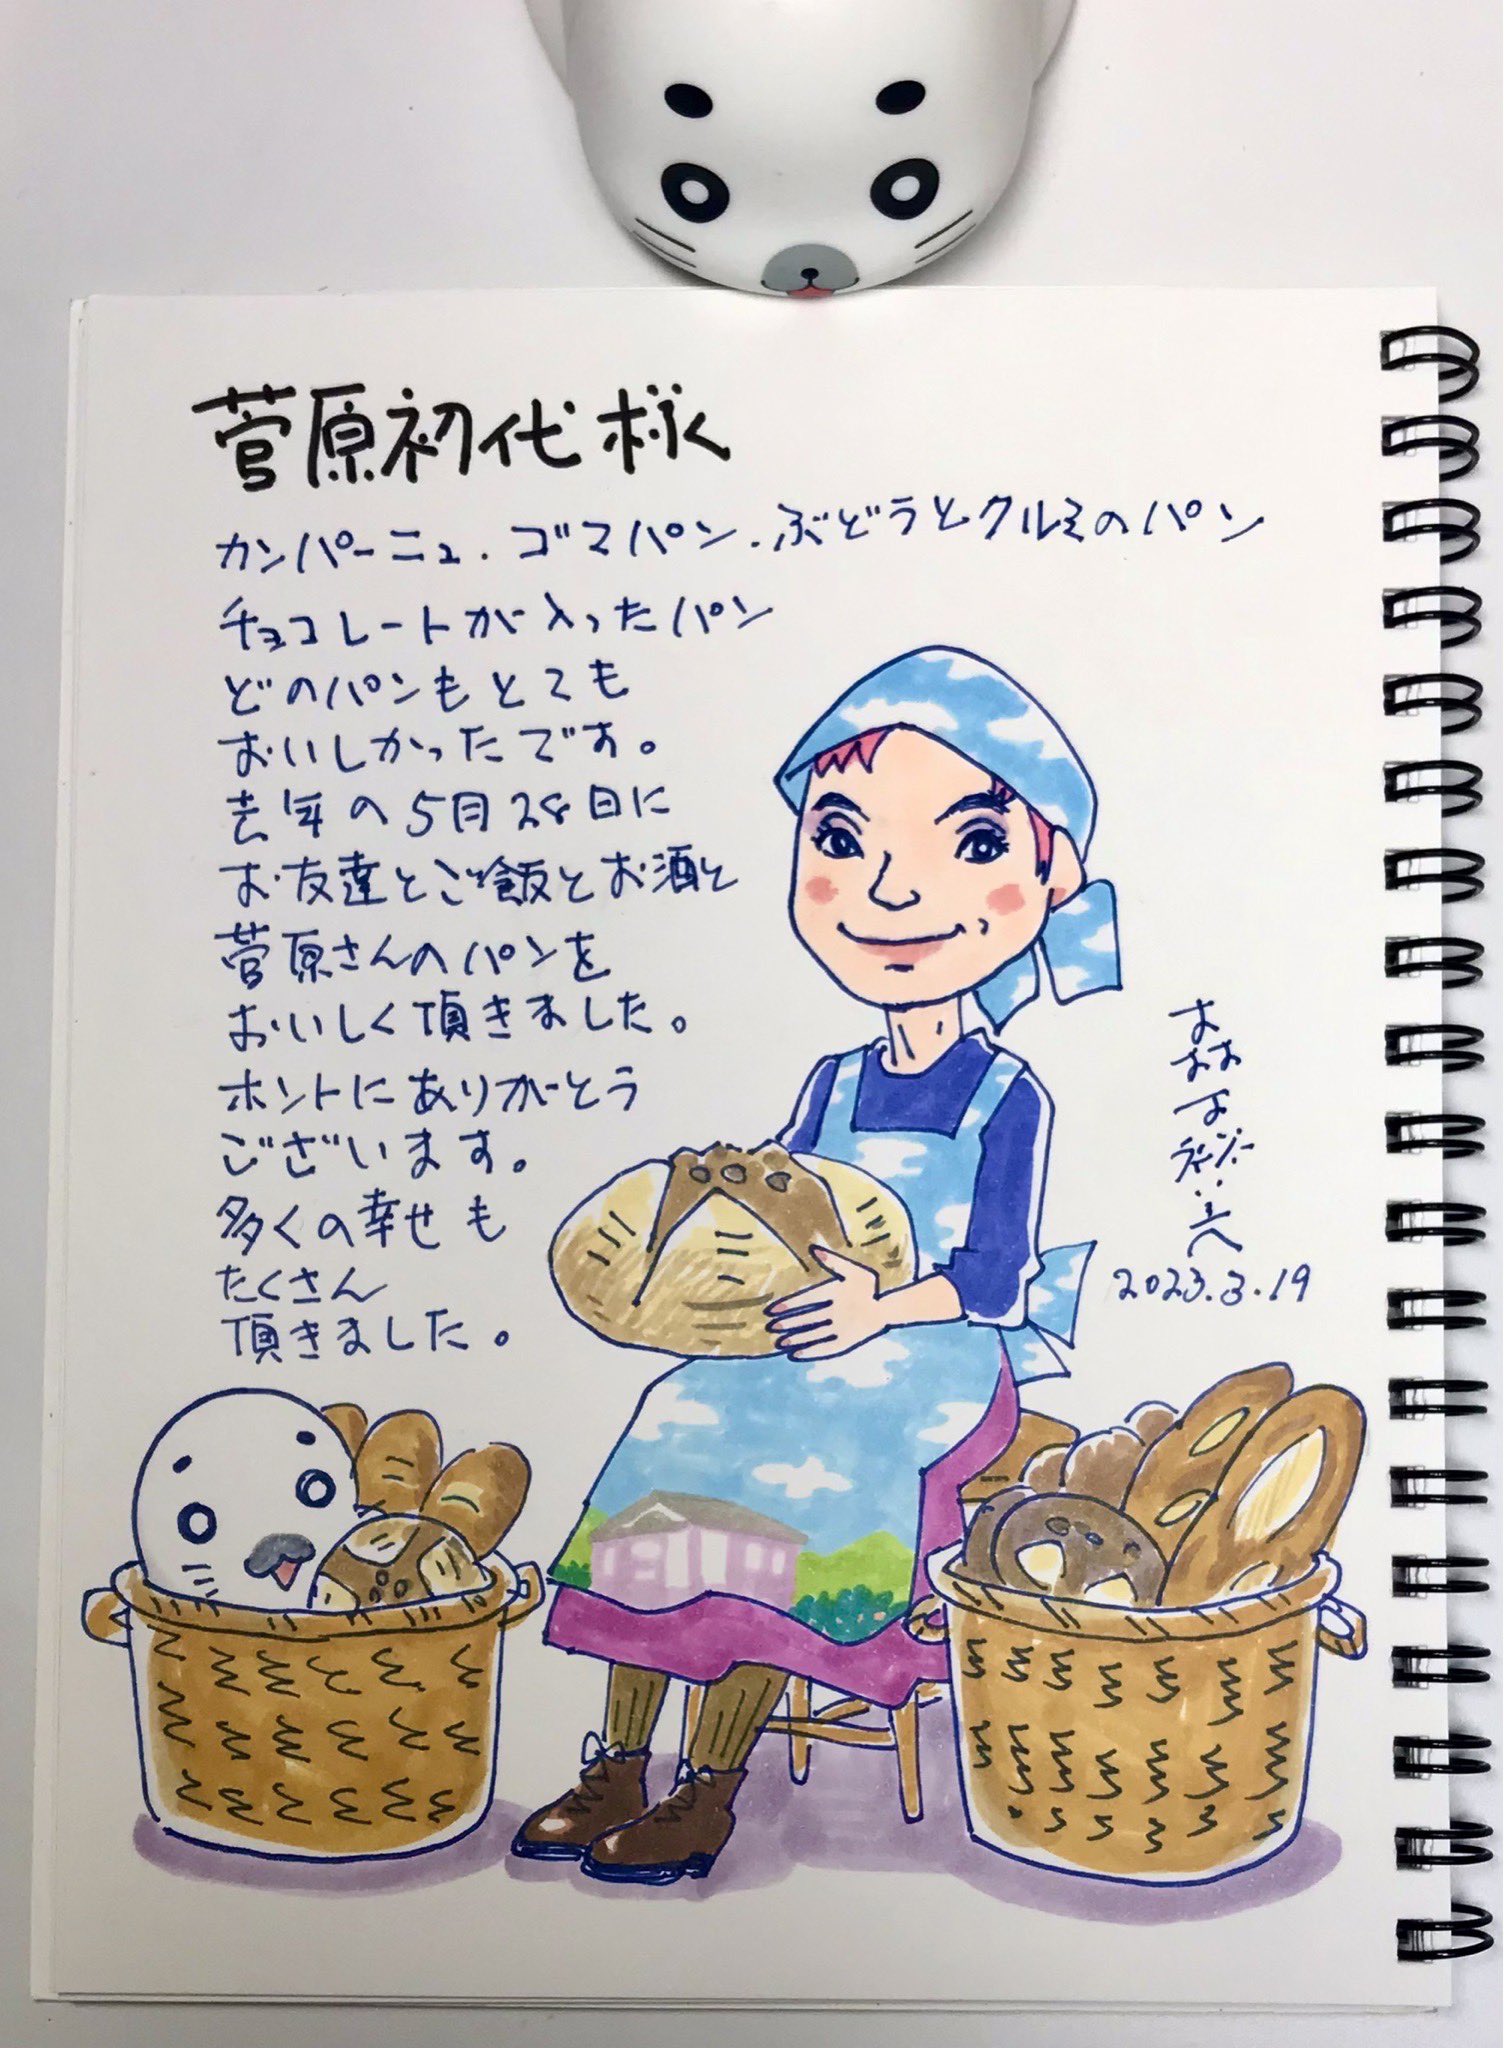 菅原初代様
カンパーニュ.ゴマパン.ぶどうとクルミのパン
チョコレートが入ったパン
どのパンもとても
おいしかったです。
去年の5月28日に
お友達とご飯とお酒と
菅原さんのパンを
おいしく頂きました。
ホントにありがとう
ございます。
多くの幸せも
たくさん
頂きました。
2023.3.19